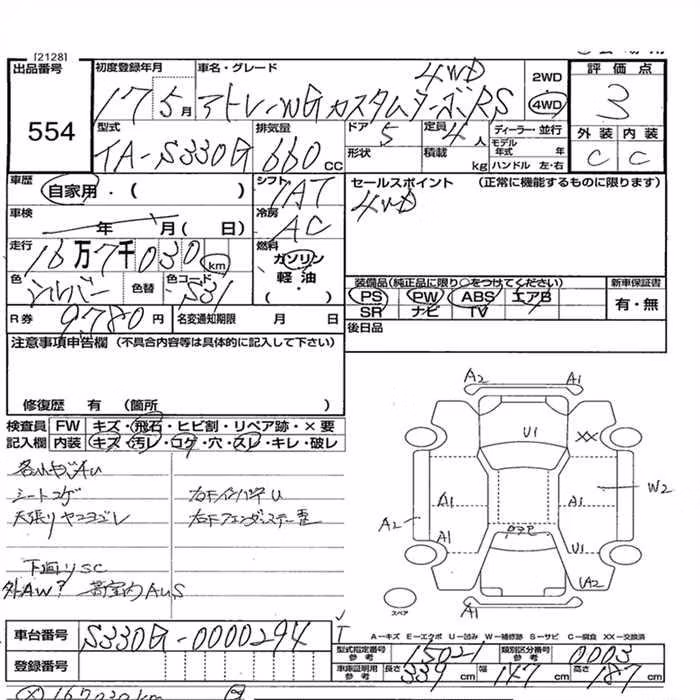 [2128]
出品番号
554
初度登録年月
17 5月
車名・グレード
4WD
アトレーWGカスタムターボRS
2WD
4WD
評価点
3
型式
TA-S330G
排気量
660cc
ドア
5
形状
定員
4人
積載 kg
ディーラー・並行
モデル年式 年
ハンドル 左・右
外装 内装
C C
車歴
自家用・( )
シフト
IAT
セールスポイント (正常に機能するものに限ります)
4WD
車検
年 月( 日)
冷房
AC
走行
16万7千030 km
燃料
ガソリン
軽油
( ・ )
色
シルバー
色替
色コード
S31
装備品(純正品に限り○をつけてください)
PS PW ABS エアB
SR ナビ TV
新車保証書
有・無
R券
9780円
名変通知期限 月 日
後日品
注意事項申告欄(不具合内容等は具体的に記入して下さい)
修復歴 有 (箇所 )
検査員記入欄
FW キズ・飛石・ヒビ割・リペア跡・×要
内装 キズ・汚レ・コゲ・穴・スレ・キレ・破レ
シートコゲ
天張りヤニヨゴレ
下廻りSC
外AW?
A2 A1
U1
XX
A1 A1
W2
A2
A1
U1
A2
A1
スペア
A-キズ E-エクボ U-凹み W-補修跡 S-サビ C-腐食 XX-交換済
車台番号
S330G-0000294
登録番号
型式指定番号 参考
15021
類別区分番号 参考
0003
車庫証明用 参考
長さ 339cm
幅 147cm
高さ 187cm